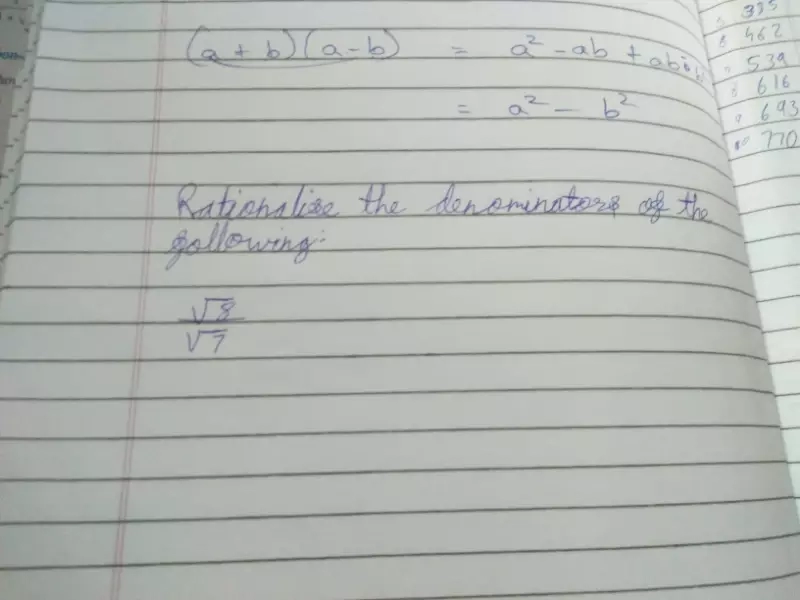 (a + b)(a - b) = a² - ab + ab
= a² - b²
Rationalise the denominators of the
following:
√8
√7
462
539
616
693
770